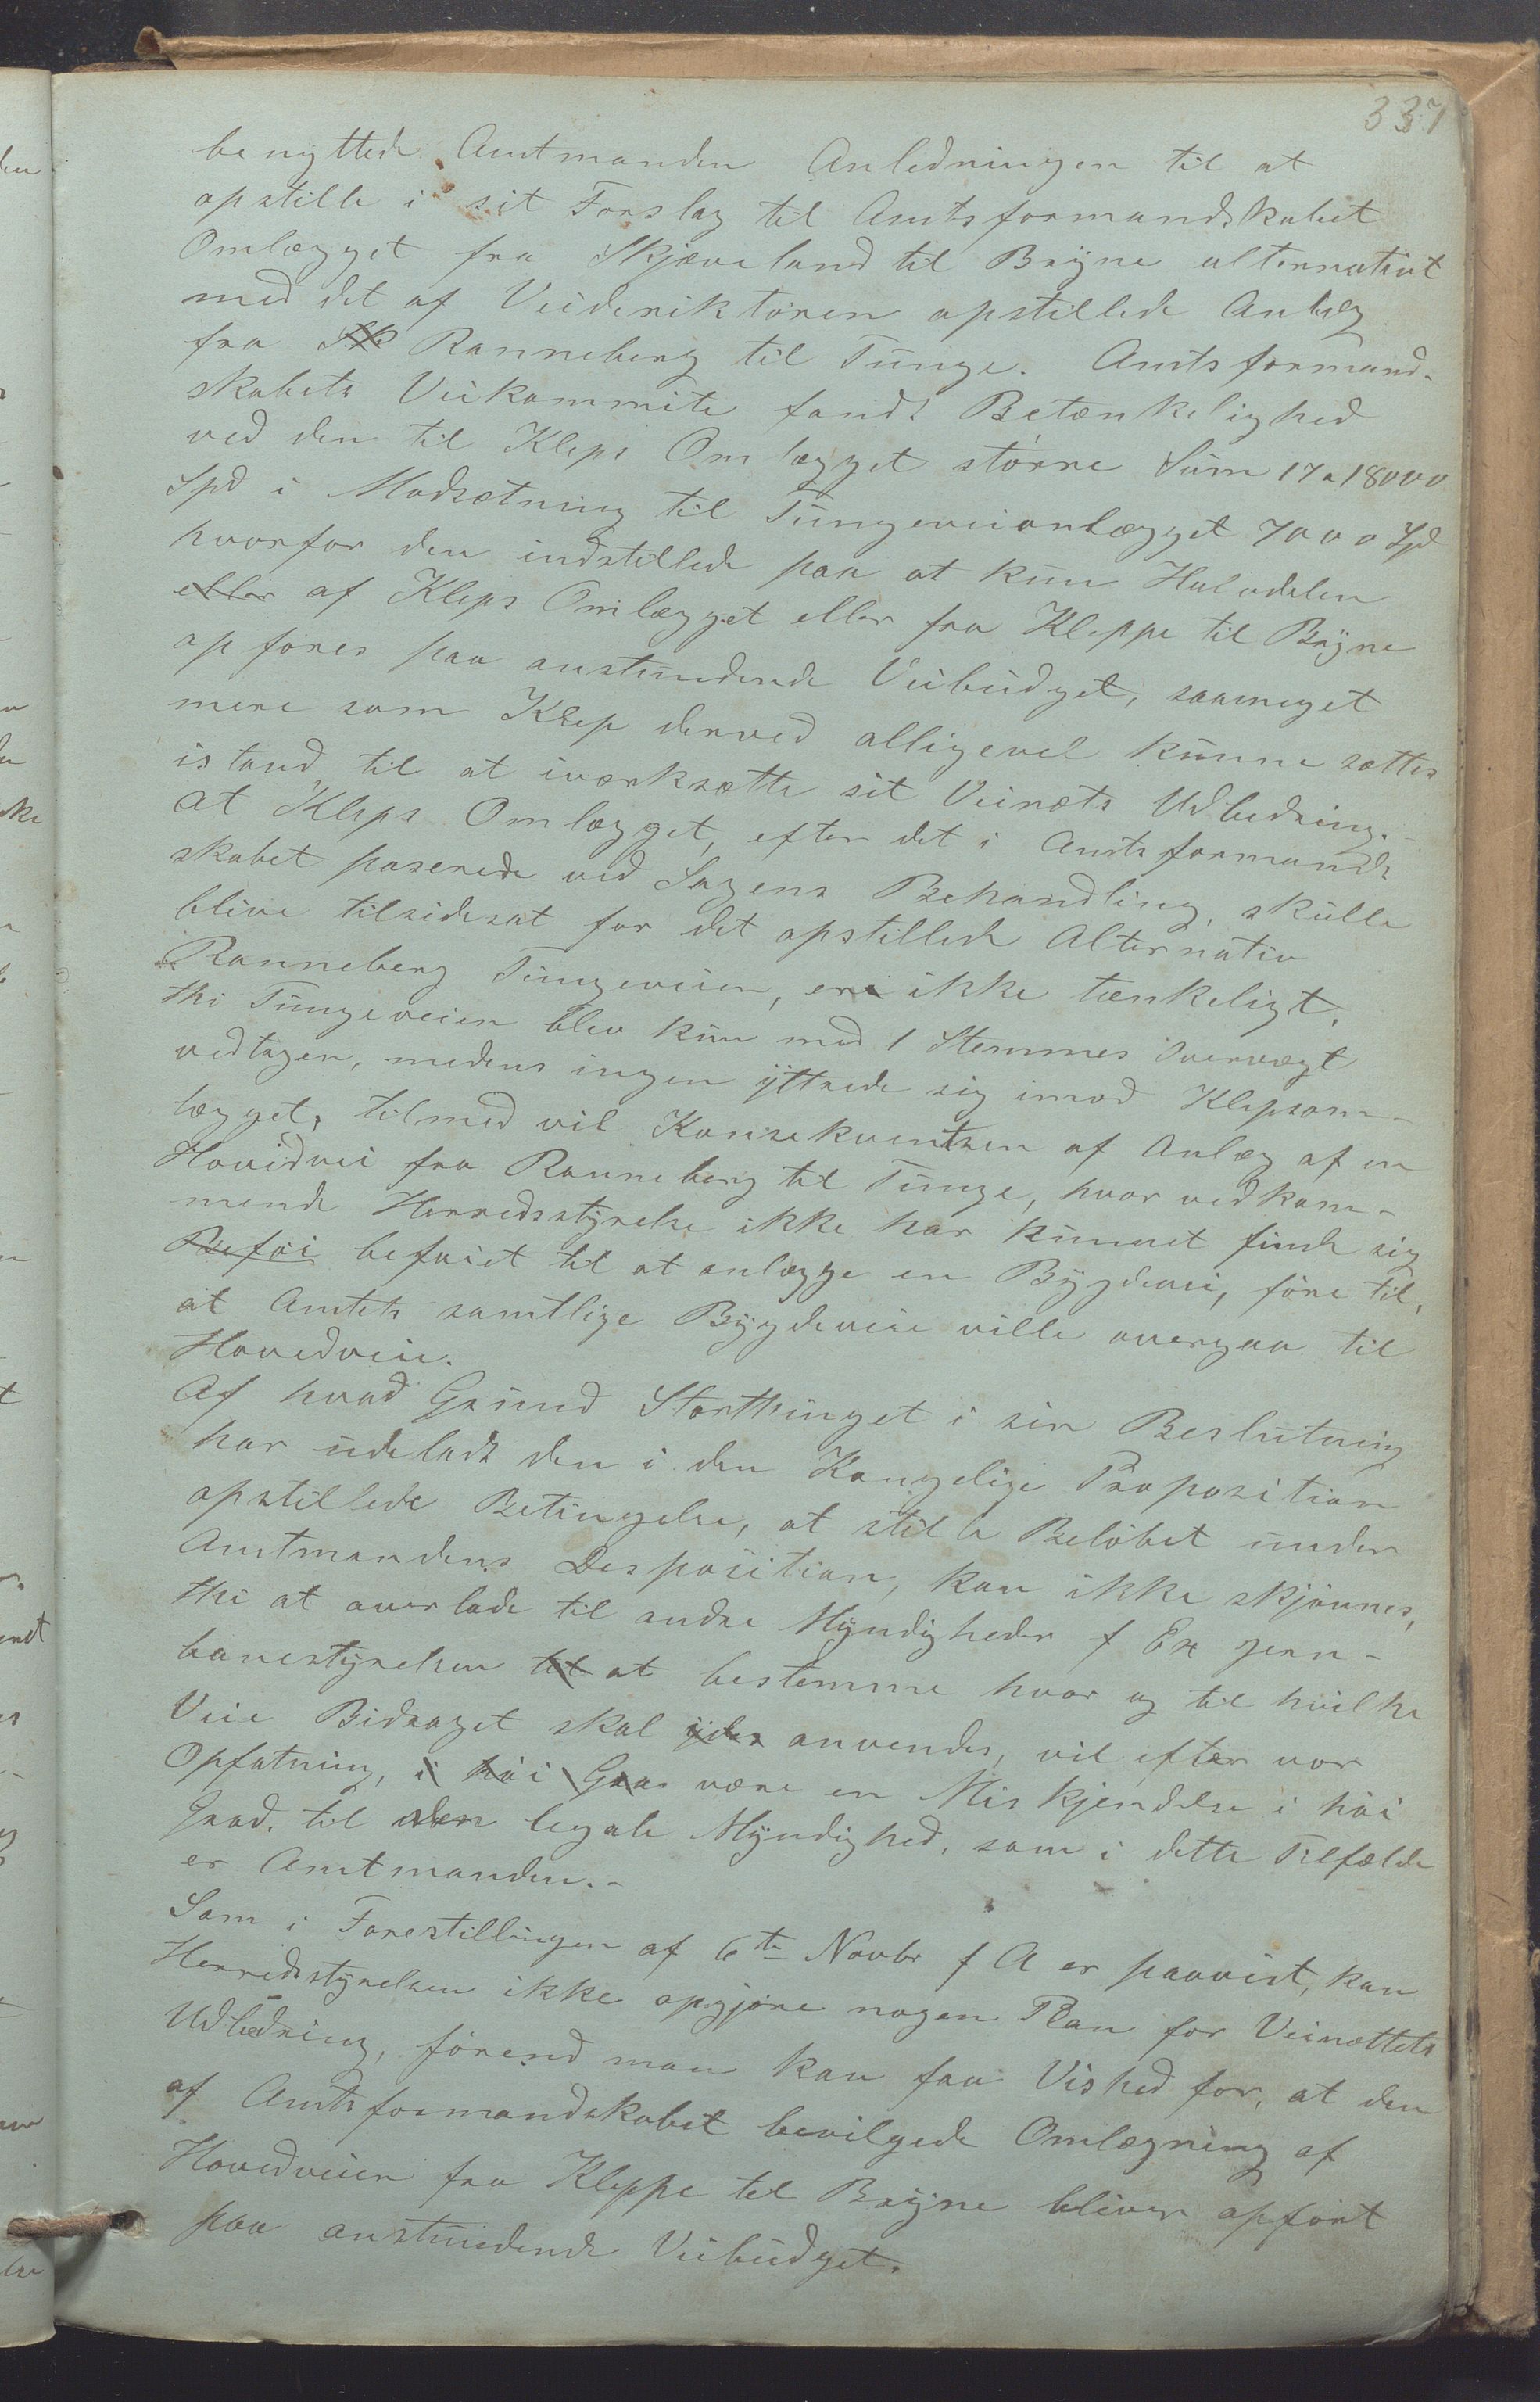 337
benyttede Amtmanden Anledningen til at
opstille i sit Forslag til Amtsformandskabet
Omlægget fra Skjæveland til Bryne alternativt
med det af Veideriktøren opstillede Anlæg
fra Sk Ranneberg til Tunge. Amtsformand-
skabets Veikommite fandt Betænkelighed
ved den til Kleps Omlægget større Sum 17 a 18000
Spd i Modsætning til Tungeveianlægget 7000 Spd
hvorfor den indstillede paa at kun Halvdelen
eller af Kleps Omlægget eller fra Kleppe til Bryne
opføres paa anstundende Veibudget, saameget
mere som Klep derved alligevel kunne sættes
istand til at iværksætte sit Veinæts Udbedring.
At Kleps Omlægget, efter det i Amtsformands
skabet paserede ved Sagens Behandling, skulle
blive tilsidesat for det opstillede Alternativ
Ranneberg Tungeveien, er ikke tænkeligt,
thi Tungeveien blev kun med 1 Stemmes Overvægt
vedtagen, medens ingen yttrede sig imod Klepsom-
lægget, tilmed vil Konsekventsen af Anlæg af en
Hovedvei fra Ranneberg til Tunge, hvor vedkom-
mende Herredsstyrelse ikke har kunnet finde sig
Beføi beføiet til at anlægge en Bygdevei, føre til,
at Amtets samtlige Bygdeveie ville overgaa til
Hovedveie.
Af hvad Grund Storthinget i sin Beslutning
har udeladt den i den Kongelige Proposition
opstillede Betingelse, at stille Beløbet under
Amtmandens Desposition, kan ikke skjønnes,
thi at overlade til andre Myndigheder f Ex Jern-
banestyrelsen til at bestemme hvor og til hvilke
Veie Bidraget skal ydes anvendes, vil efter vor
Opfatning, i høi Graa være en Miskjendelse i høi
Grad. til den legale Myndighed, som i dette Tilfælde
er Amtmanden.-
Som i Forestillingen af 6te Novbr f A er paavist, kan
Herredsstyrelsen ikke opgjøre nogen Plan for Veinættets
Udbedring, førend man kan faa Vished for, at den
af Amtsformandskabet bevilgede Omlægning af
Hovedveien fra Kleppe til Bryne bliver opført
paa anstundende Veibudget.